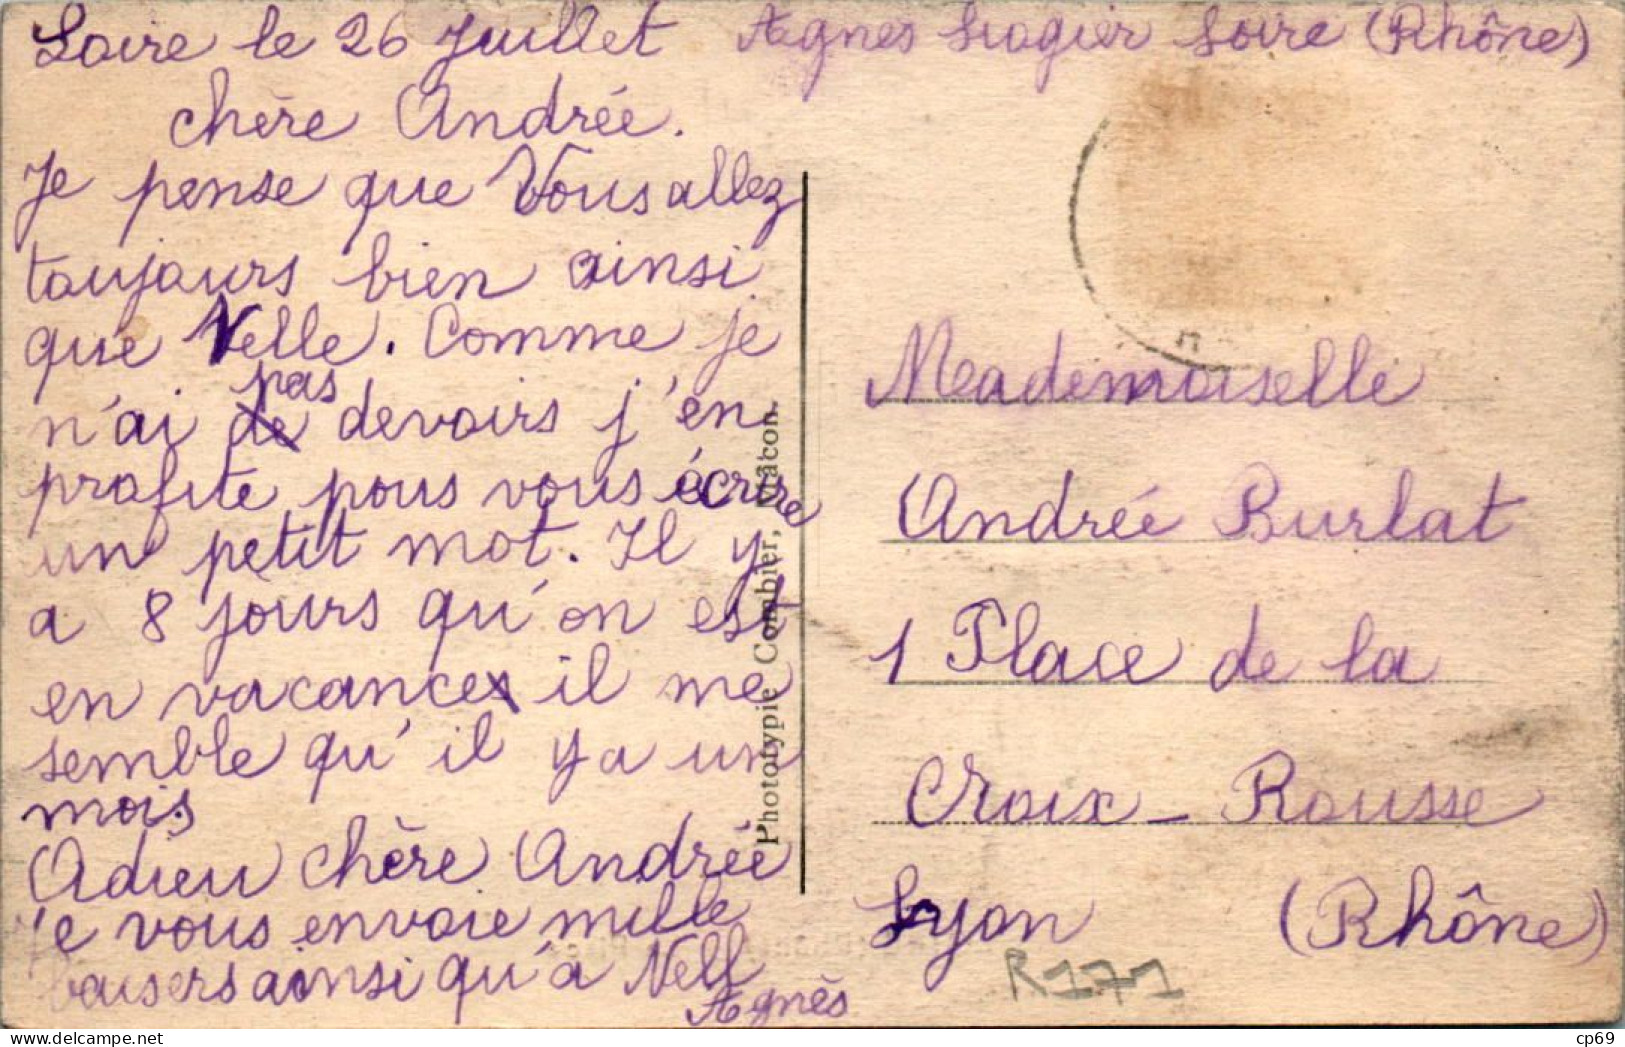 Loire le 26 Juillet
chère Andrée.
Je pense que Vous allez
toujours bien ainsi
que Nelle. Comme je
n'ai pas devoirs j'en
profite pous vous écrire
un petit mot. Il y
a 8 jours qu'on est
en vacance il me
semble qu'il y a un
mois.
Adieu chère Andrée
je vous envoie mille
baisers ainsi qu'à Nell
Agnès
Agnes Loire (Rhône)
Phototypie Combier, Mâcon
Meademoiselle
Andrée Burlat
1 Place de la
Croix-Rousse
Lyon (Rhône)
R171
cp69